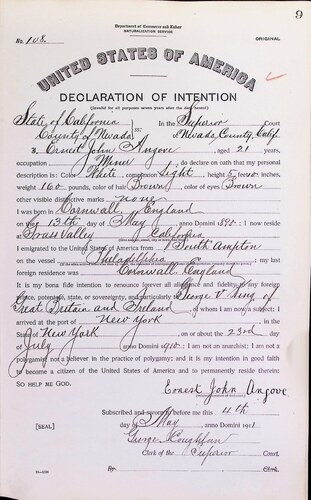 9
Department of Commerce and Labor
NATURALIZATION SERVICE
No. 108. ORIGINAL
UNITED STATES OF AMERICA
DECLARATION OF INTENTION
(Invalid for all purposes seven years after the date hereof)
State of California In the Superior Court
County of Nevada ss: of Nevada County, Calif.
I, Ernest John Angove, aged 21 years,
occupation Miner, do declare on oath that my personal
description is: Color White, complexion Light, height 5 feet 10 inches,
weight 160 pounds, color of hair Brown, color of eyes Brown
other visible distinctive marks none
I was born in Cornwall, England
on the 13th day of May, anno Domini 1890; I now reside
at Grass Valley, California
I emigrated to the United States of America from South Ampton
on the vessel Philadelphia; my last
foreign residence was Cornwall, England
It is my bona fide intention to renounce forever all allegiance and fidelity to any foreign
prince, potentate, state, or sovereignty, and particularly to George V King of
Great Britain and Ireland, of whom I am now a subject; I
arrived at the port of New York, in the
State of New York, on or about the 23rd day
of July, anno Domini 1910; I am not an anarchist; I am not a
polygamist nor a believer in the practice of polygamy; and it is my intention in good faith
to become a citizen of the United States of America and to permanently reside therein:
SO HELP ME GOD.
Ernest John Angove
Subscribed and sworn to before me this 4th
[SEAL] day of May, anno Domini 1911
George
Clerk of the Superior Court.
By Clerk.